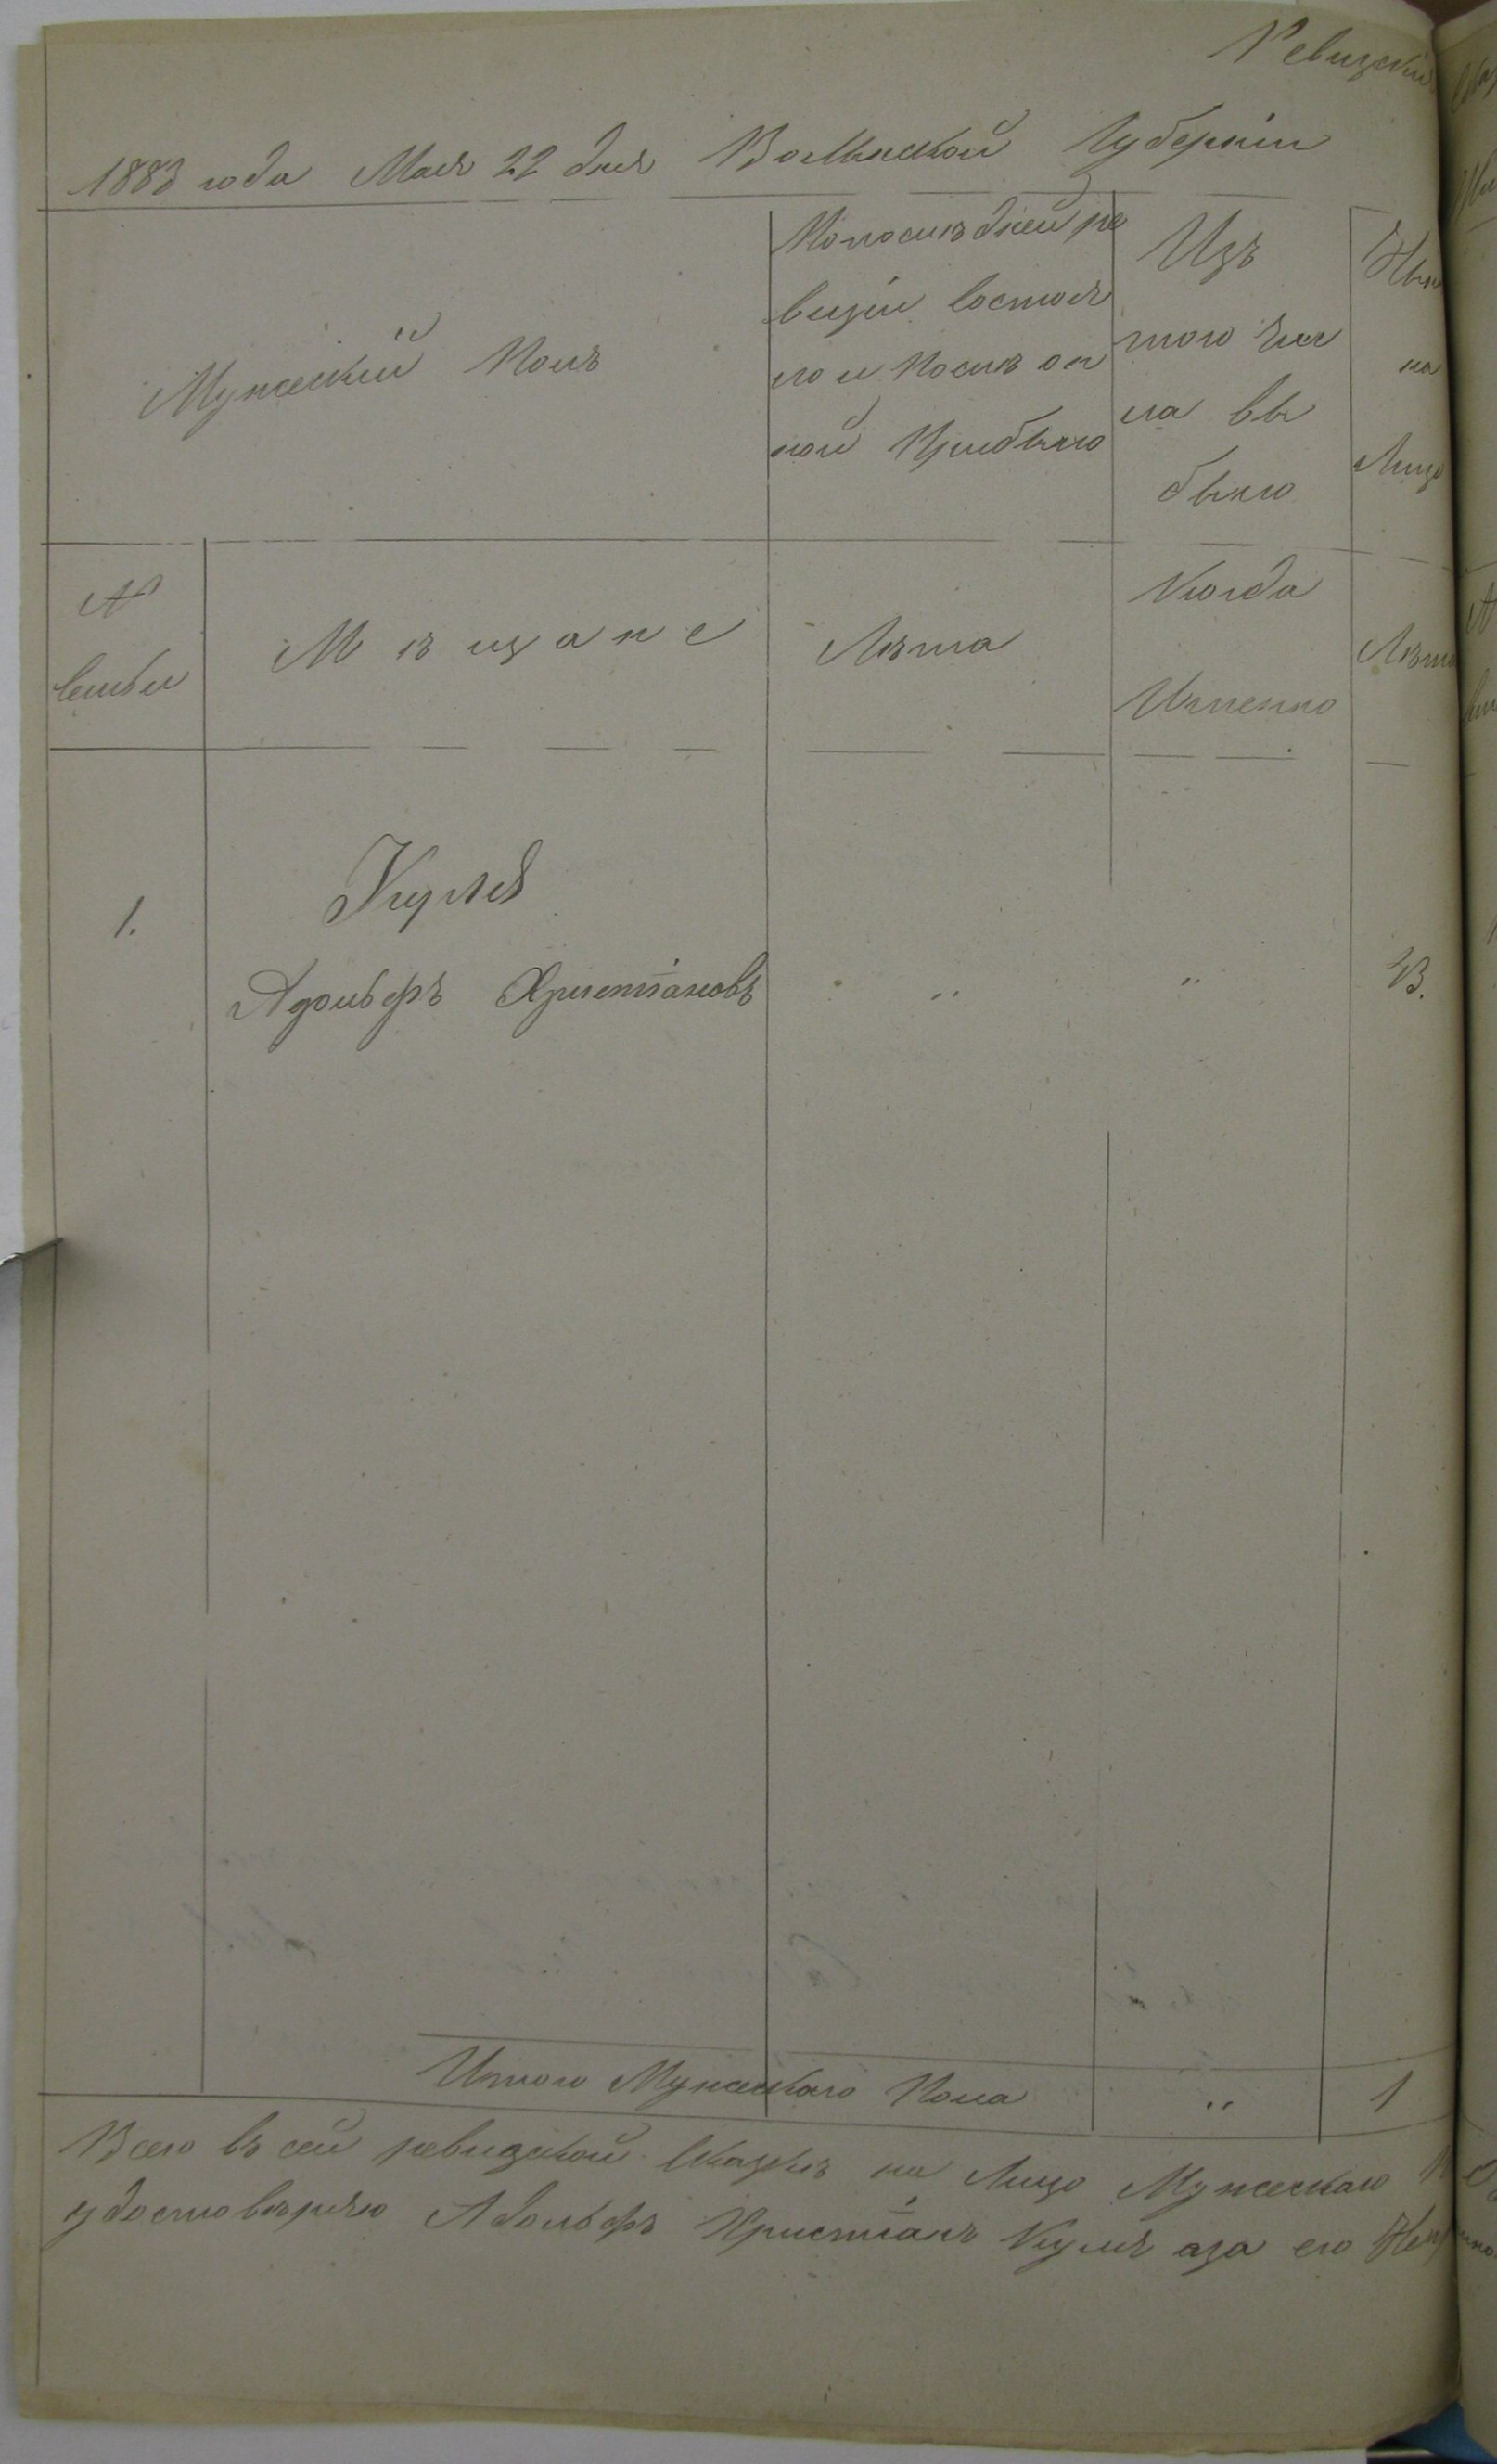 Ревизская
1883 года Мая 22 дня Волынской Губерніи
Мужескій Полъ
Попослѣдней ре
визіи состоя
ло и Послѣ он
ной Прибыло
Изъ
того чис
ла вы
было
Нын
на
Лицо
№
семьи
Мѣщане
Лѣта
Когда
Именно
Лѣта
1.
Куля
Адольфъ Християновъ
"
"
В.
Итого Мужескаго Пола
"
1
Всего въ сей ревизской Сказкѣ на Лицо Мужескаго
удостовѣряю Адольфъ Християнъ Куля аза его